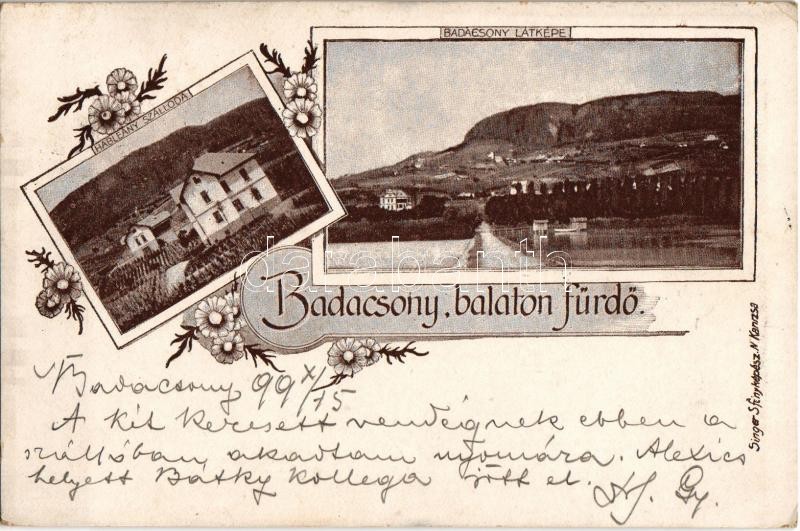 BADACSONY LÁTKÉPE
HABLEÁNY SZÁLLODA
Badacsony, balaton fürdő.
Singer S fényképész. N Kanizsa
Badacsony 99 X/15
A két keresett vendégnek ebben a
szállóban akadtam nyomára. Alexics
helyett Bátky kollega jött el.
Gy.
databahn.hu